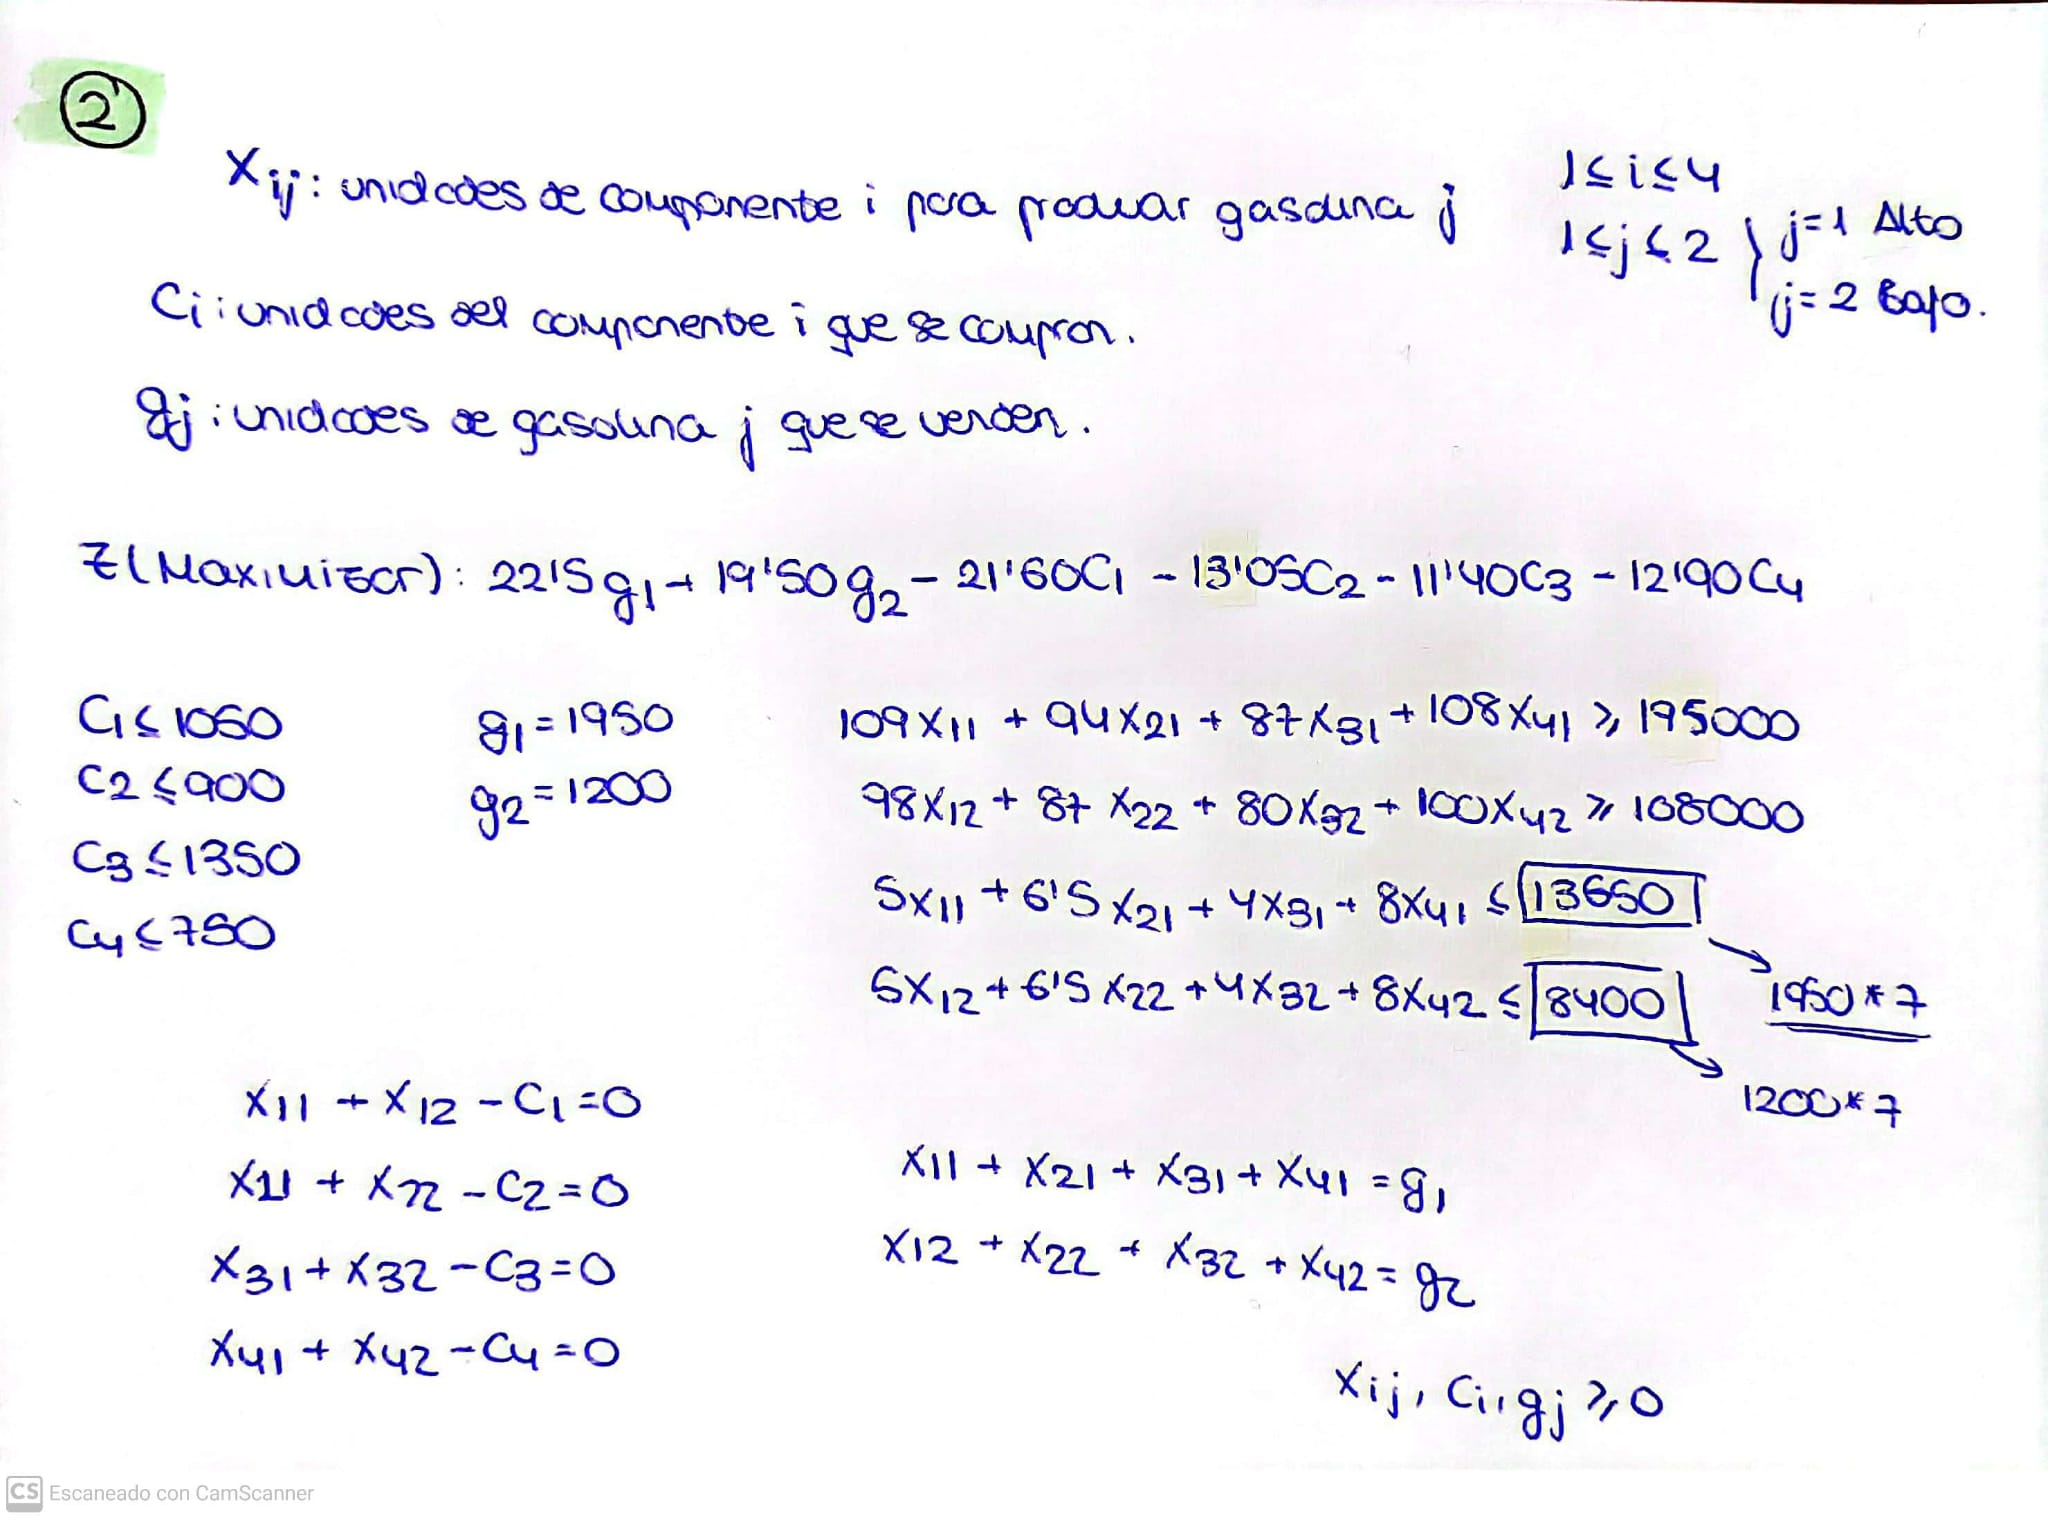 2
Xij: unidades de componente i para producir gasolina j
1≤i≤4
1≤j≤2 } j=1 Alto
j=2 Bajo.
Ci: unidades del componente i que se compran.
gj: unidades de gasolina j que se venden.
Z(Maximizar): 22'5g1 + 19'50g2 - 21'60C1 - 13'05C2 - 11'40C3 - 12'90C4
C1≤1050
C2≤900
C3≤1350
C4≤750
g1=1950
g2=1200
109X11 + 94X21 + 87X31 + 108X41 ≥ 195000
98X12 + 87X22 + 80X32 + 100X42 ≥ 108000
5X11 + 6'5X21 + 4X31 + 8X41 ≤ 13650
1950*7
5X12 + 6'5X22 + 4X32 + 8X42 ≤ 8400
1200*7
X11 + X12 - C1=0
X21 + X22 - C2=0
X31 + X32 - C3=0
X41 + X42 - C4=0
X11 + X21 + X31 + X41 = g1
X12 + X22 + X32 + X42 = g2
Xij, Ci, gj ≥ 0
CS Escaneado con CamScanner